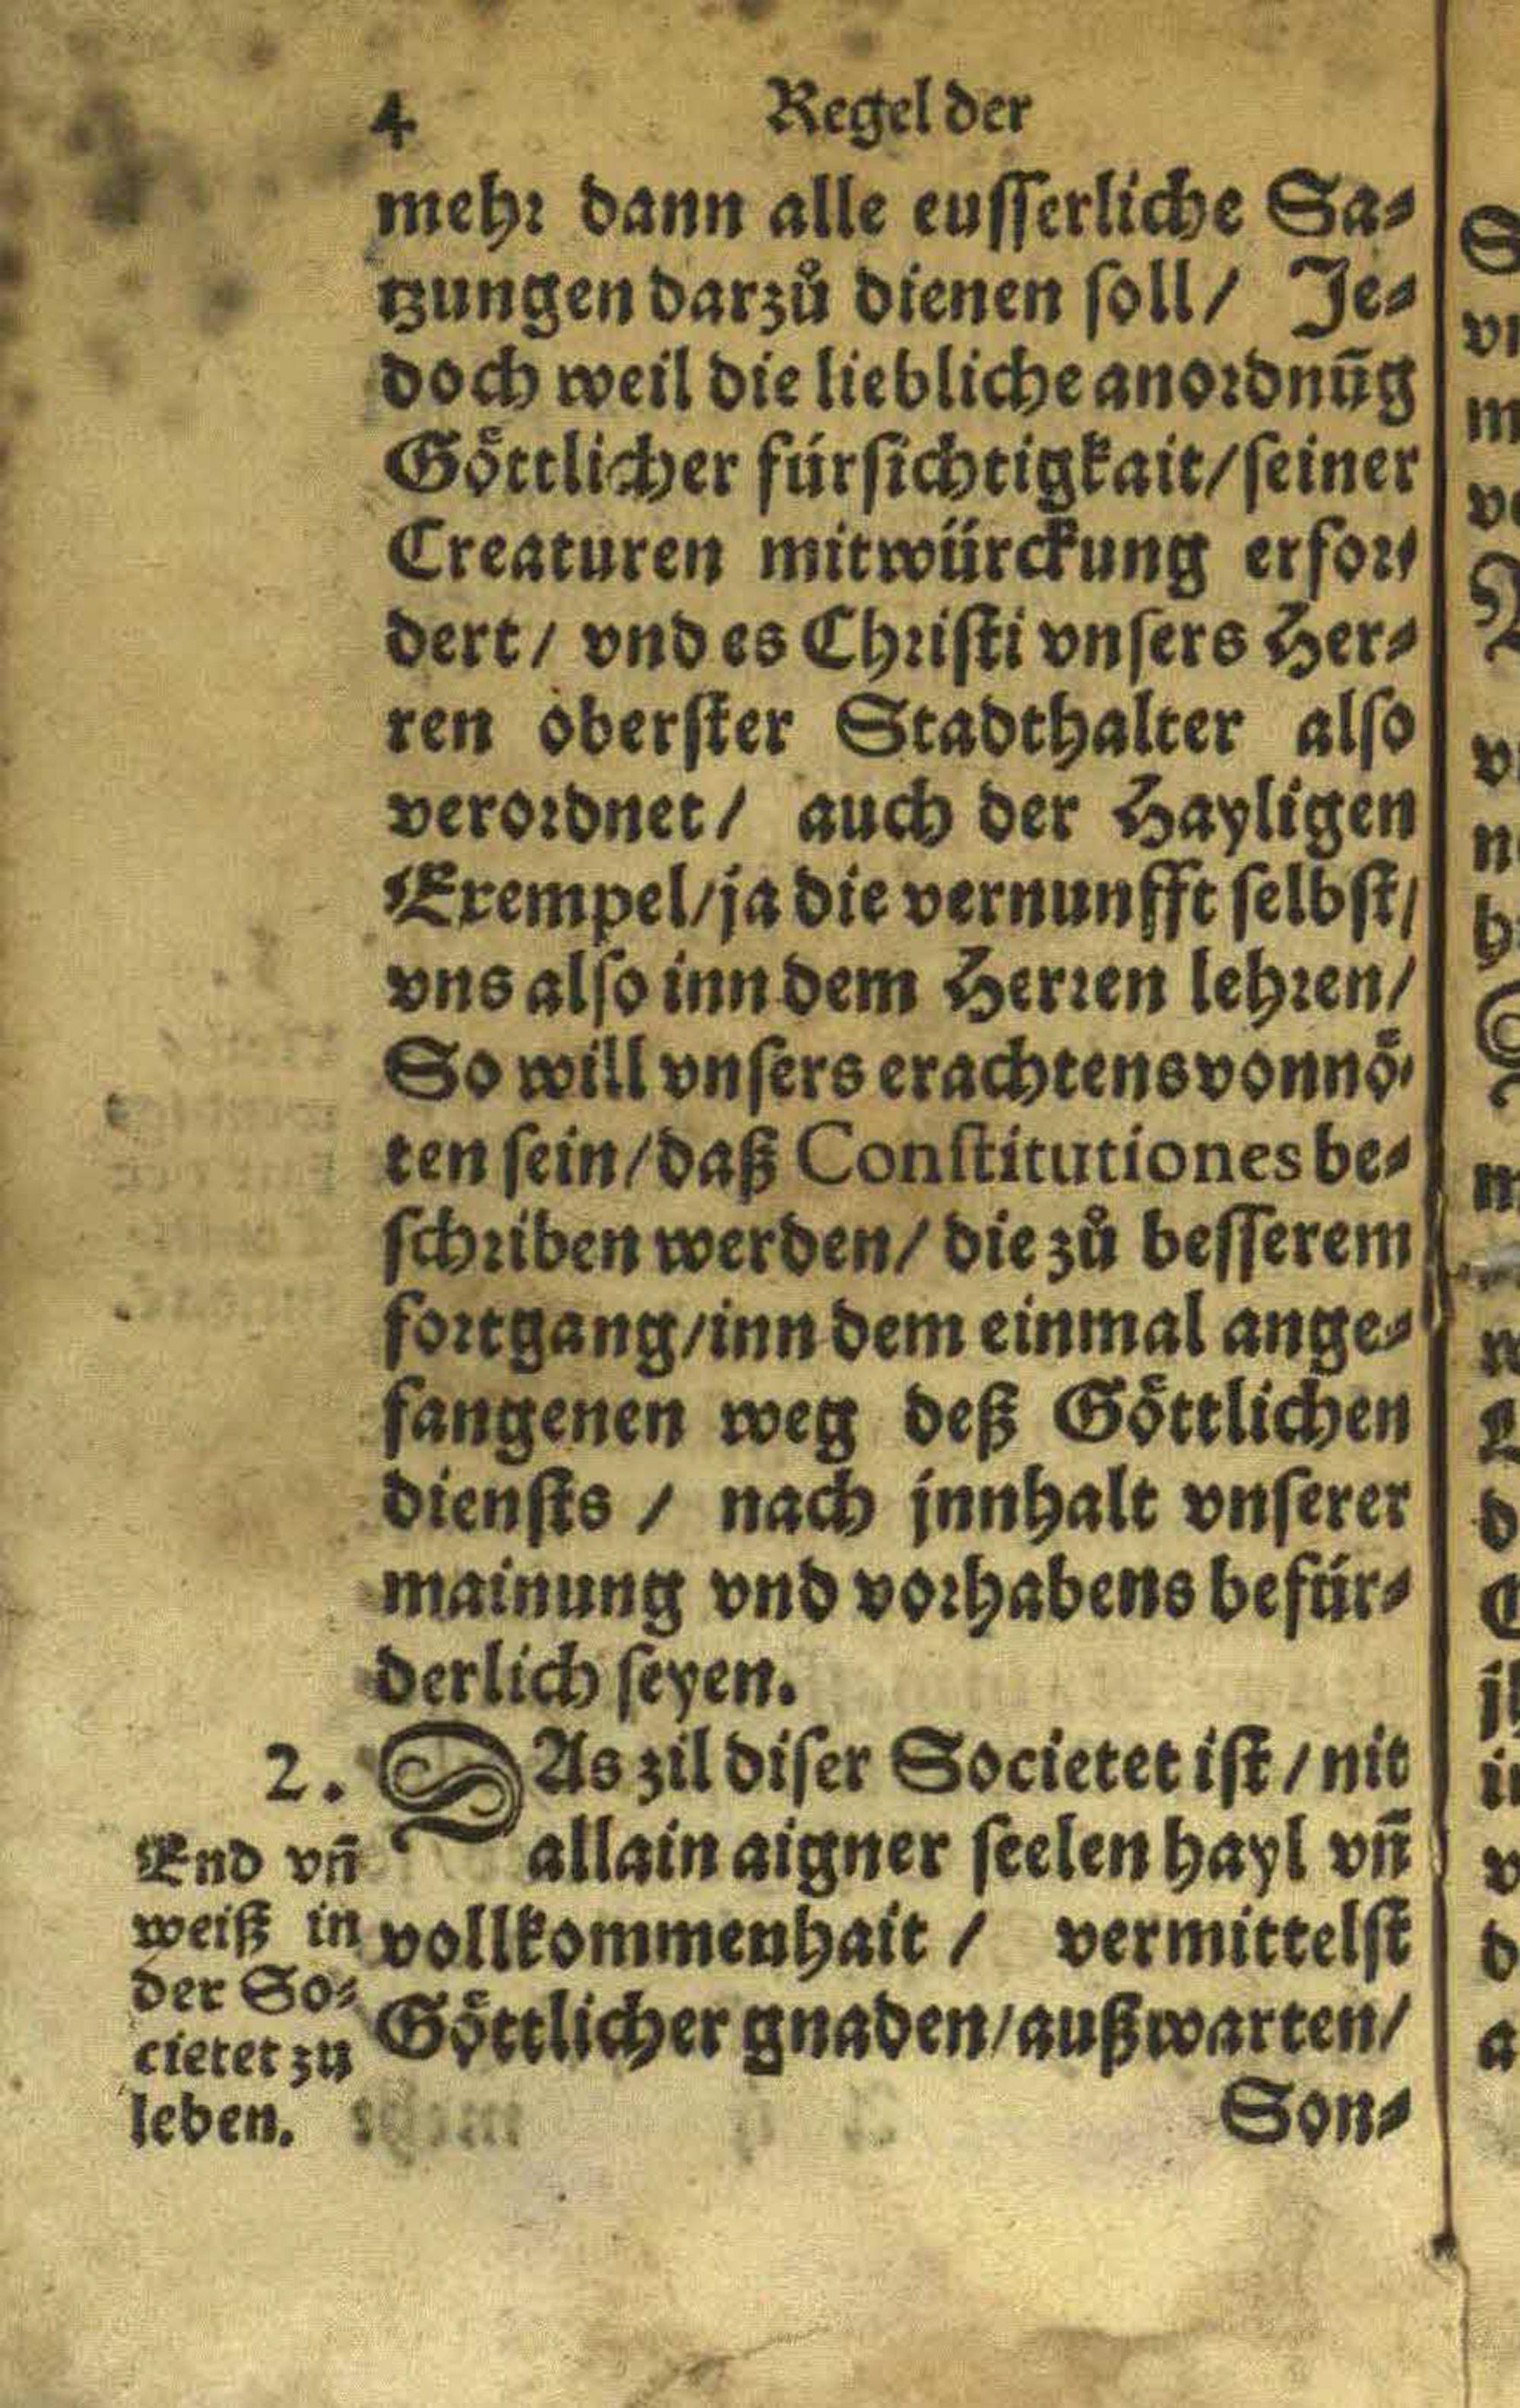 4 Regel der
mehr dann alle eusserliche Sa-
tzungen darzů dienen soll/ Je-
doch weil die liebliche anordnũg
Goͤttlicher fürsichtigkait/seiner
Creaturen mitwürckung erfor-
dert/ vnd es Christi vnsers Her-
ren oberster Stadthalter also
verordnet/ auch der Hayligen
Exempel/ja die vernunfft selbst/
vns also inn dem Herren lehren/
So will vnsers erachtens vonnoͤ-
ten sein/daß Constitutiones be-
schriben werden/ die zů besserem
fortgang/inn dem einmal ange-
fangenen weg deß Goͤttlichen
diensts / nach jnnhalt vnserer
mainung vnd vorhabens befür-
derlich seyen.
2. DAs zil diser Societet ist / nit
allain aigner seelen hayl vñ
vollkommenhait / vermittelst
Goͤttlicher gnaden/außwarten/
Son-
End vñ
weiß in
der So-
cietet zu
leben.